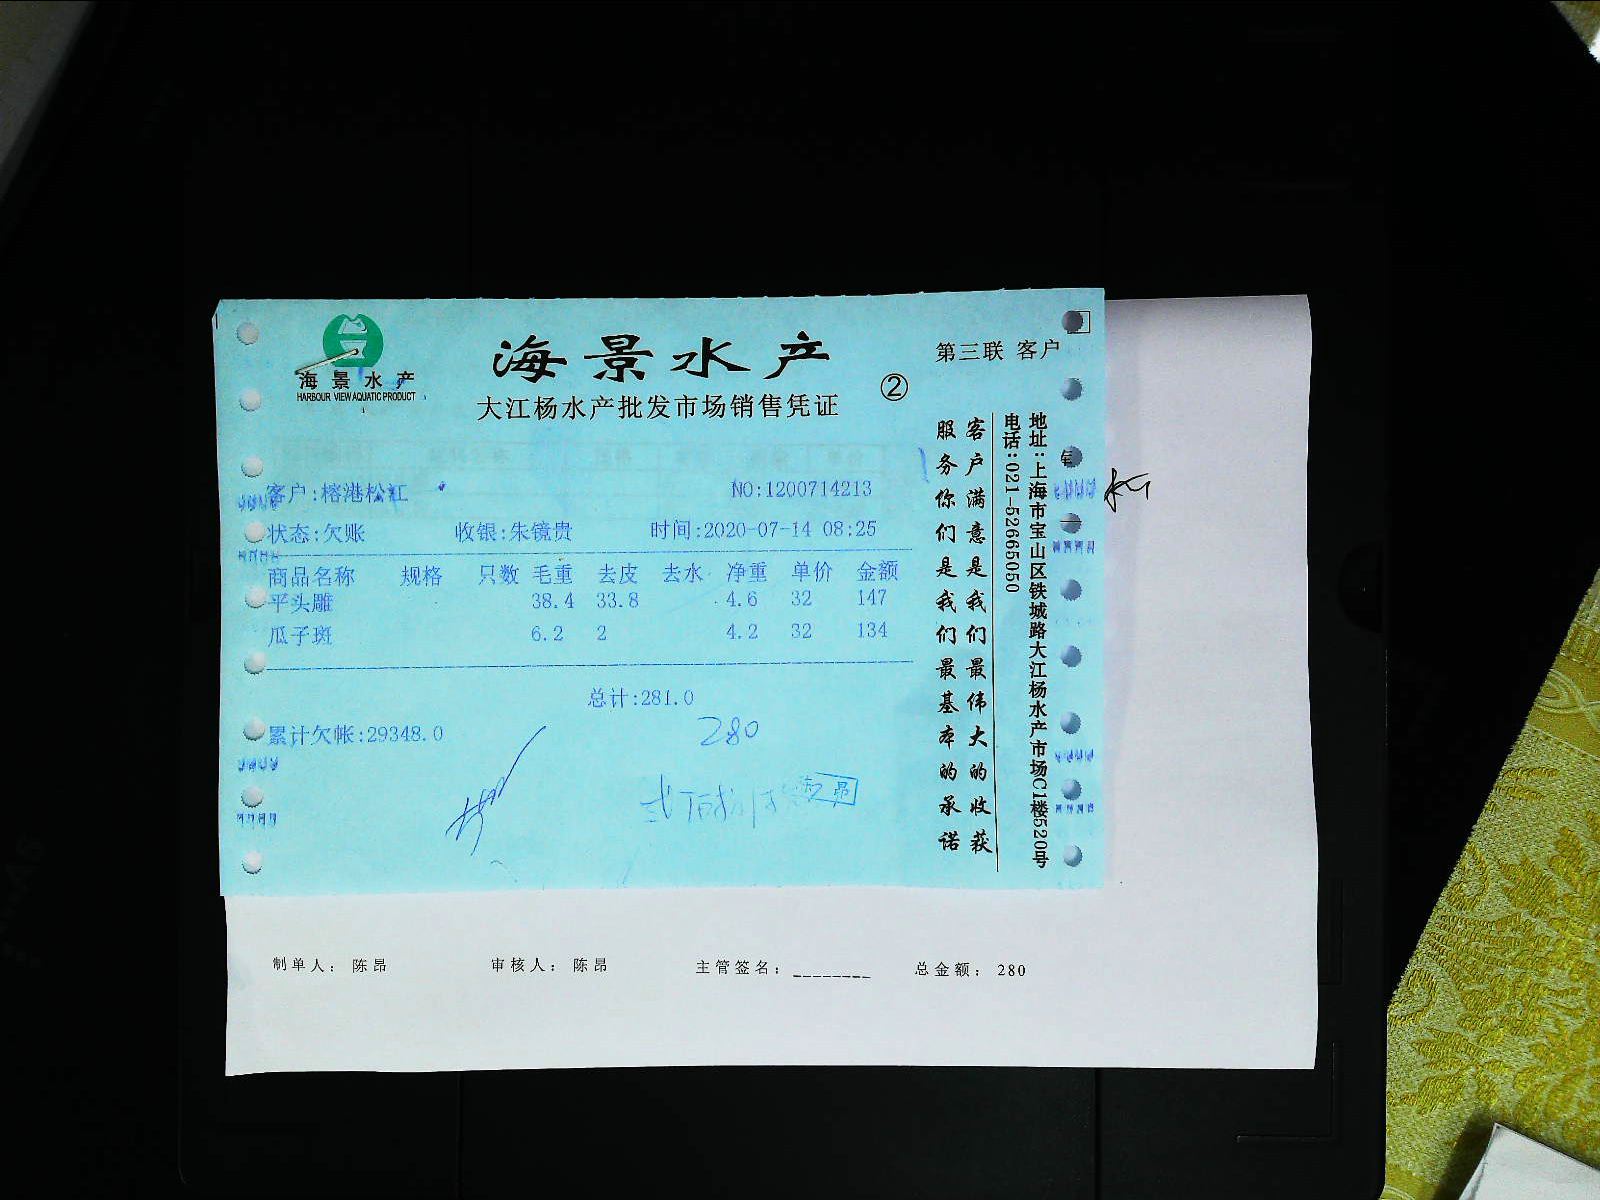 海景水产
HARBOUR VIEW AQUATIC PRODUCT
海景水产
大江杨水产批发市场销售凭证
②
第三联 客户
客户:榕港松江 NO:1200714213
状态:欠账 收银:朱镜贵 时间:2020-07-14 08:25
商品名称 规格 只数 毛重 去皮 去水 净重 单价 金额
平头雕 38.4 33.8 4.6 32 147
瓜子斑 6.2 2 4.2 32 134
总计:281.0
累计欠帐:29348.0
280
客户满意是我们最伟大的收获
服务你们是我们最基本的承诺
地址:上海市宝山区铁城路大江杨水产市场C1楼520号
电话:021-52665050
制单人: 陈昂 审核人: 陈昂 主管签名:________ 总金额: 280